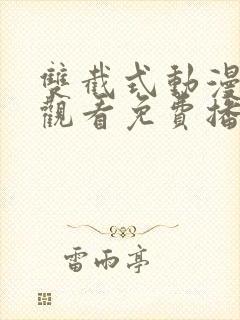 雙截式動漫
觀看免費播
雷雨亭